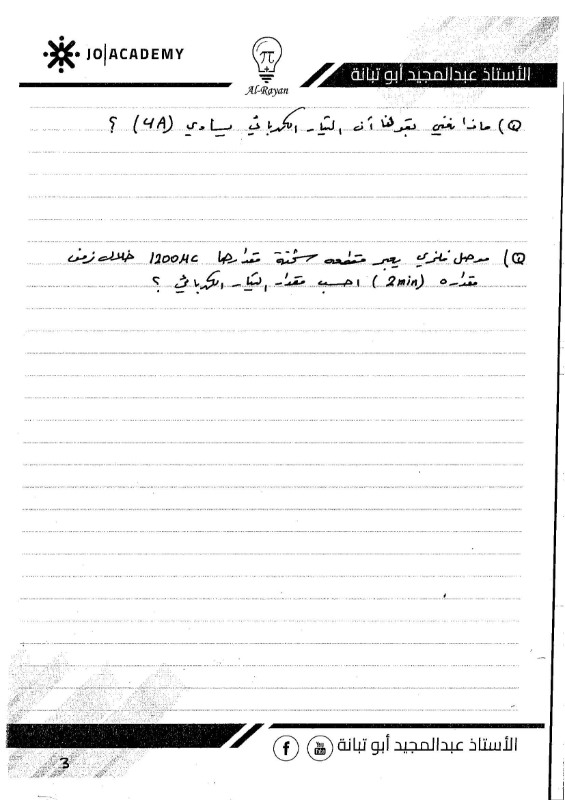 JO|ACADEMY
الأستاذ عبدالمجيد أبو تبانة
π
Al-Rayan
Q) ماذا نعني بقولنا أن التيار الكهربائي يساوي (4A) ؟
Q) موصل فلزي يعبر مقطعه شحنة مقدارها 1200μC خلال زمن
مقداره (2min) احسب مقدار التيار الكهربائي ؟
الأستاذ عبدالمجيد أبو تبانة
You Tube
f
3